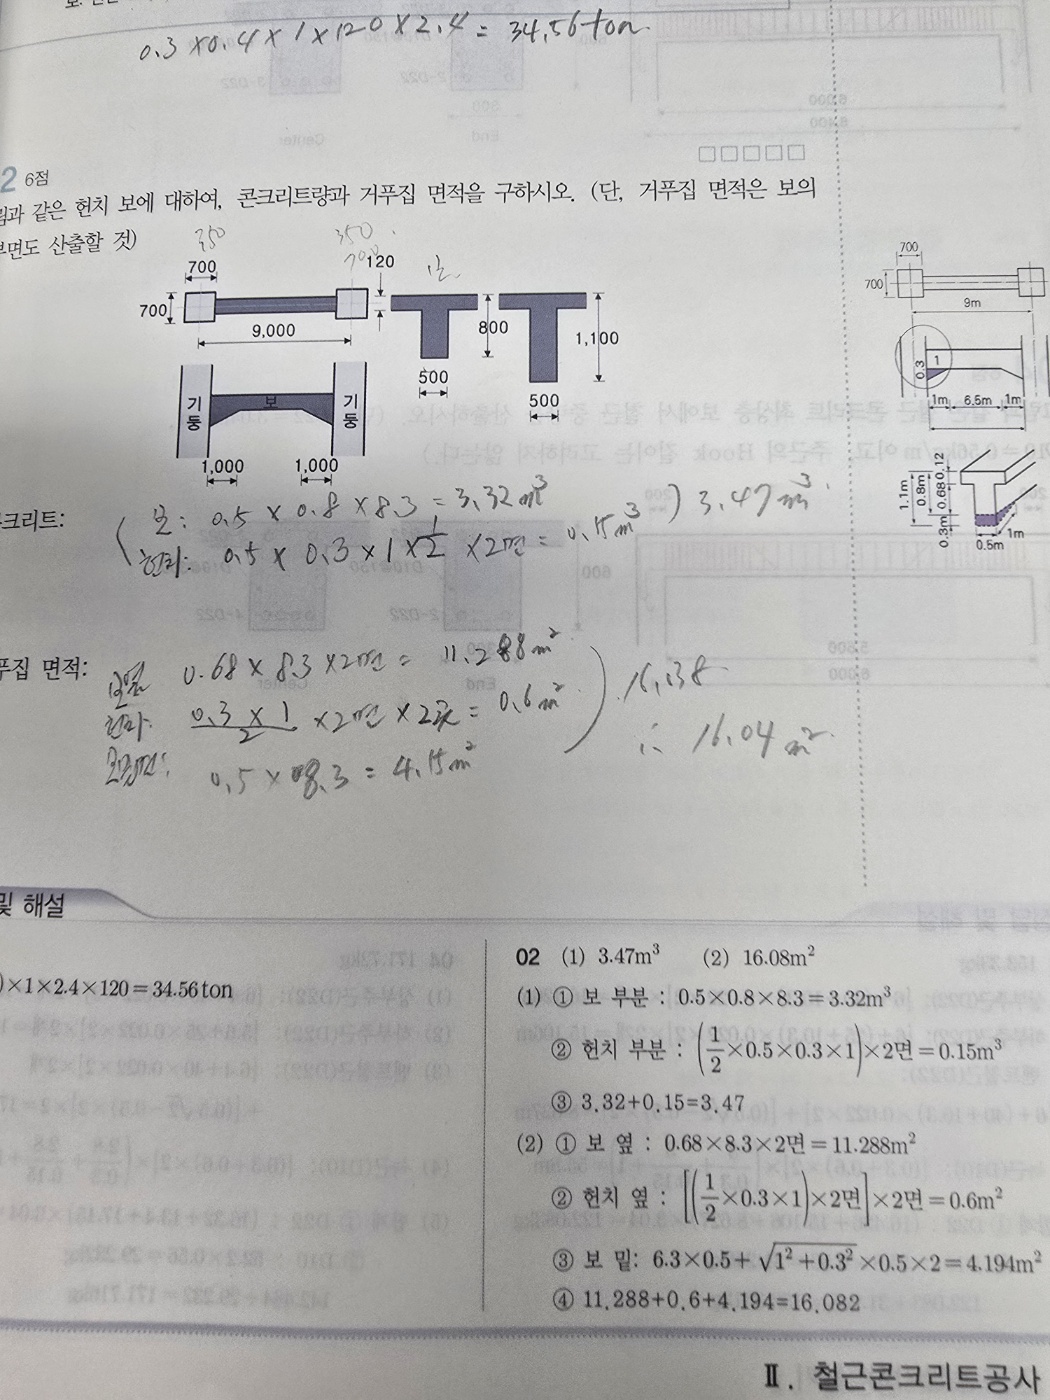 0.3 × 0.4 × 1 × 120 × 2.4 = 34.56 ton.
2 6점
림과 같은 헌치 보에 대하여, 콘크리트량과 거푸집 면적을 구하시오. (단, 거푸집 면적은 보의
부면도 산출할 것)
350 350
700
700
700
9,000
120
800
1,100
500
500
기둥
보
기둥
1,000
1,000
700
700
9m
1
0.3
1m 6.5m 1m
1.1m
0.8m
0.68
0.12
0.3m
0.5m
1m
크리트:
보: 0.5 × 0.8 × 8.3 = 3.32m³
헌치: 0.5 × 0.3 × 1 × 1/2 × 2면 = 0.15m³
) 3.47m³.
푸집 면적:
보옆 0.68 × 8.3 × 2면 = 11.288m²
헌치: 0.3 × 1 / 2 × 2면 × 2곳 = 0.6m²
0.5 × 8.3 = 4.15m²
) 16.038
∴ 16.04m².
및 해설
)×1×2.4×120=34.56ton
02 (1) 3.47m³ (2) 16.08m²
(1) ① 보 부분 : 0.5×0.8×8.3=3.32m³
② 헌치 부분 : (1/2×0.5×0.3×1)×2면=0.15m³
③ 3.32+0.15=3.47
(2) ① 보 옆 : 0.68×8.3×2면=11.288m²
② 헌치 옆 : [(1/2×0.3×1)×2면]×2면=0.6m²
③ 보 밑: 6.3×0.5+√(1²+0.3²)×0.5×2=4.194m²
④ 11.288+0.6+4.194=16.082
Ⅱ. 철근콘크리트공사